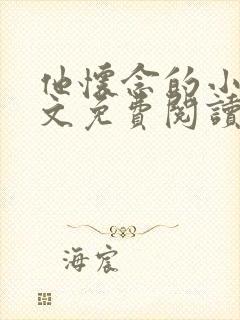 他懷念的小
文免費閱讀
海宸